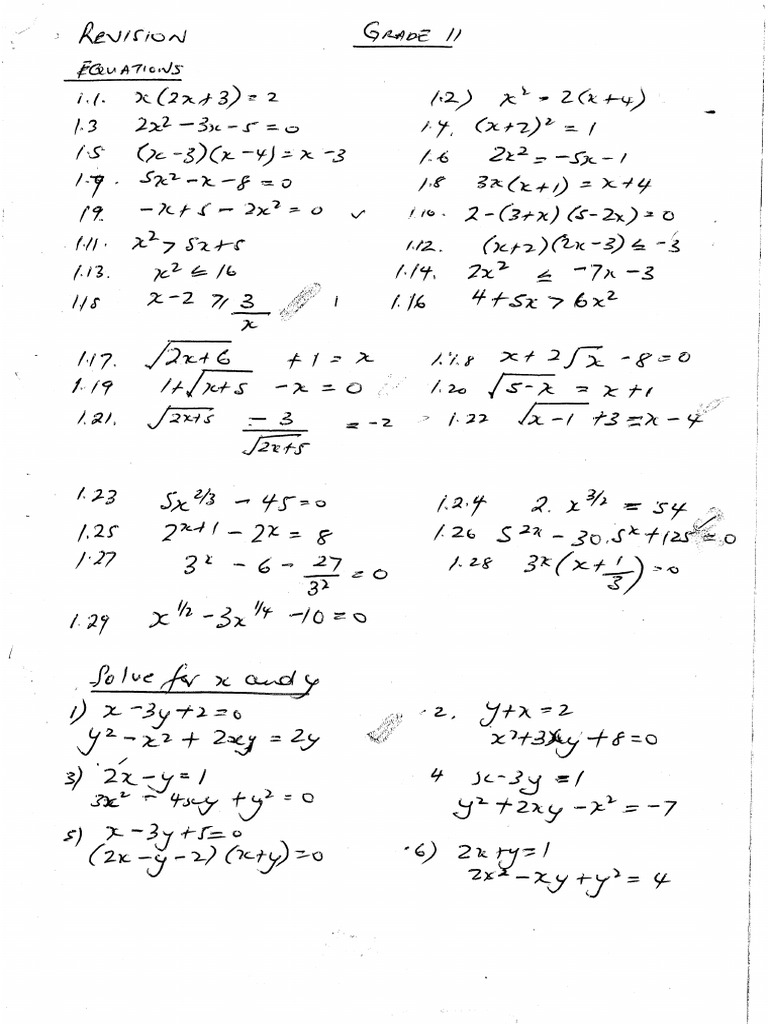 REVISION GRADE 11
EQUATIONS
1.1. x(2x+3) = 2 1.2) x² = 2(x+4)
1.3 2x² - 3x - 5 = 0 1.4. (x+2)² = 1
1.5 (x-3)(x-4) = x-3 1.6 2x² = -5x-1
1.7. 5x² - x - 8 = 0 1.8 3x(x+1) = x+4
19. -x+5-2x² = 0 1.10. 2-(3+x)(5-2x) = 0
1.11. x² > 5x+5 1.12. (x+2)(2x-3) ≤ -3
1.13. x² ≤ 16 1.14. 2x² ≤ -7x-3
1.15 x-2 ≥ 3/x 1.16 4+5x > 6x²
1.17. √(2x+6) + 1 = x 1.18 x+2√x - 8 = 0
1.19 1+√(x+5) - x = 0 1.20 √(5-x) = x+1
1.21. √(2x+5) - 3/√(2x+5) = -2 1.22 √(x-1) + 3 = x-4
1.23 5x^(2/3) - 45 = 0 1.2.4 2. x^(3/2) = 54
1.25 2^(x+1) - 2^x = 8 1.26 5^(2x) - 30.5^x + 125 = 0
1.27 3^x - 6 - 27/3^2 = 0 1.28 3^x(x+1/3) = 0
1.29 x^(1/2) - 3x^(1/4) - 10 = 0
Solve for x and y
1) x-3y+2=0 2. y+x = 2
y² - x² + 2xy = 2y x²+3xy+8=0
3) 2x-y = 1 4 x-3y = 1
3x² - 4xy + y² = 0 y² + 2xy - x² = -7
5) x-3y+5=0 6) 2x+y=1
(2x-y-2)(x+y)=0 2x² - xy + y² = 4